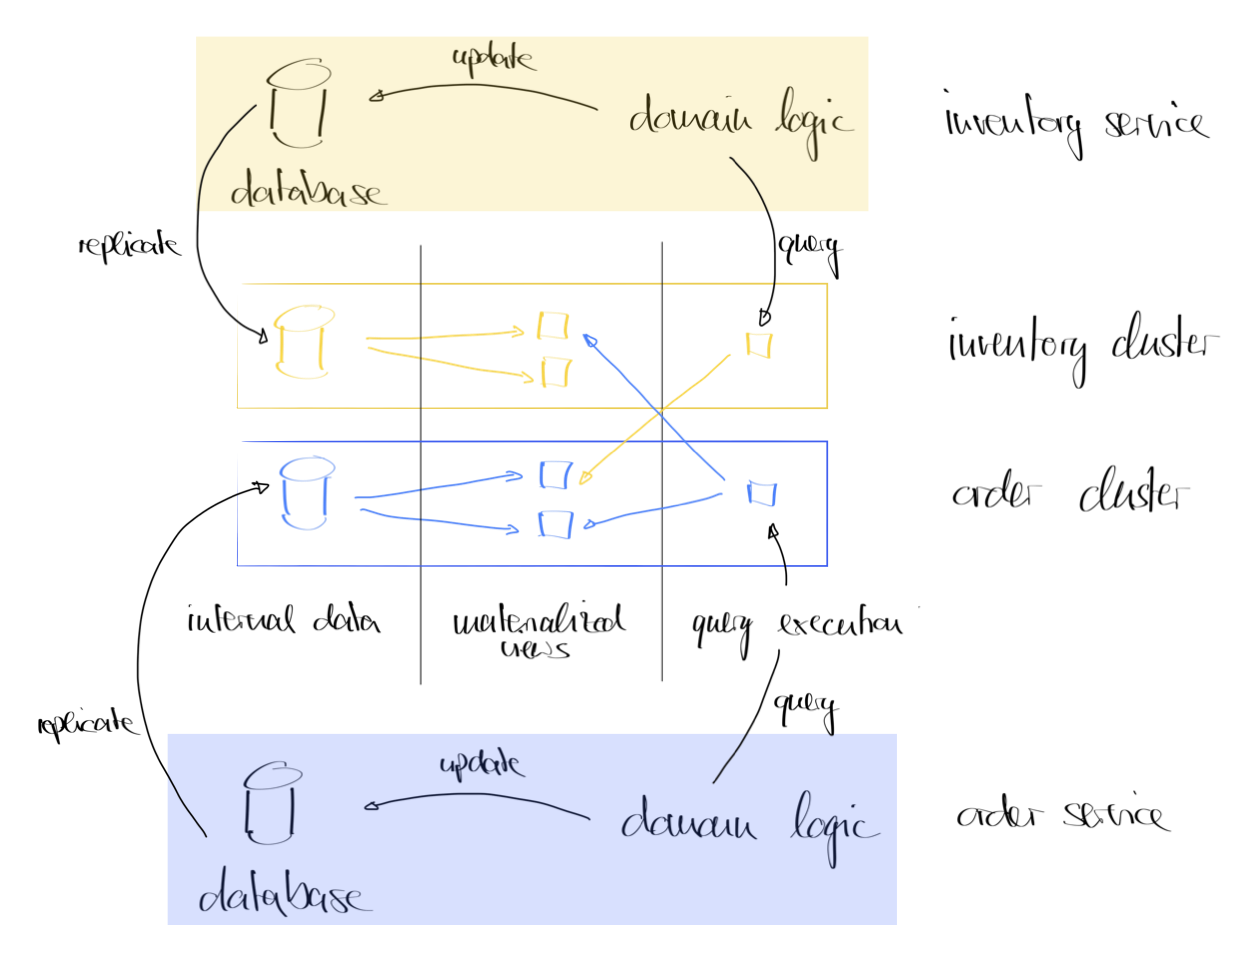 update
domain logic
inventory service
database
replicate
query
inventory cluster
order cluster
internal data
materialized
views
query execution
replicate
query
update
domain logic
order service
database